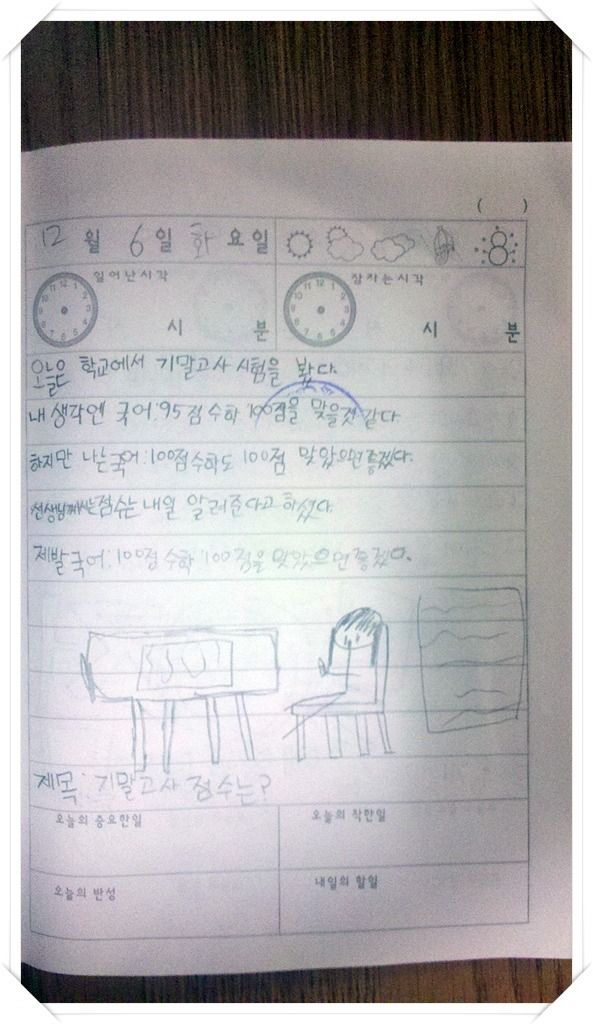 ( )
12 월 6 일 화 요일
일어난시각 시 분 잠자는시각 시 분
오늘은 학교에서 기말고사 시험을 봤다.
내 생각엔 국어:95점 수학 100점을 맞을것 같다.
하지만 나는 국어:100점 수학도 100점 맞았으면 좋겠다.
선생님께서는 점수는 내일 알려준다고 하셨다.
제발 국어:100점 수학:100점을 맞았으면 좋겠다.
제목: 기말고사 점수는?
오늘의 중요한일 오늘의 착한일
오늘의 반성 내일의 할일